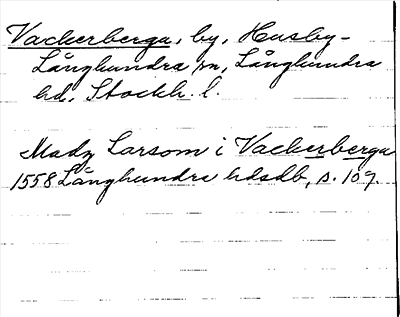 Vackerberga, by, Husby-
Långhundra sn, Långhundra
hd, Stockh. l.
Madz Larsom i Vackerberga
1558 Långhundra hdsdb, s. 107.